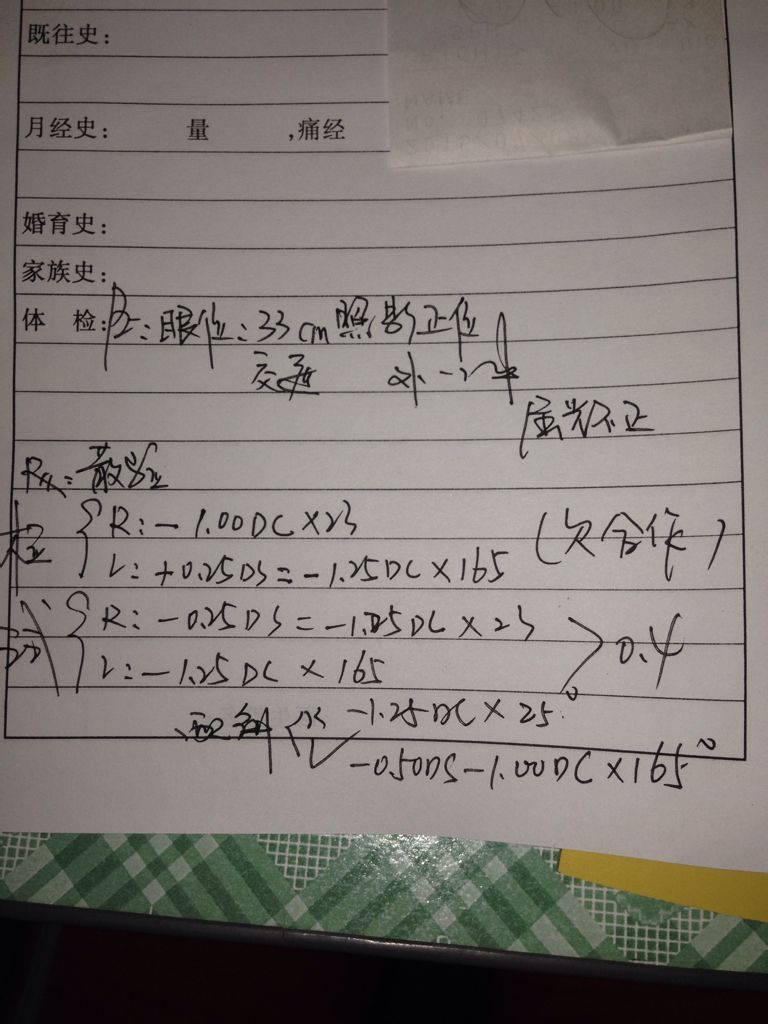 既往史：
月经史： 量 ，痛经
婚育史：
家族史：
体 检： PE：眼位：33cm照影正位
交遮 外→中
屈光不正
Rx：散瞳
检 R：-1.00DC×23
L：+0.25DS=-1.25DC×165 (欠合作)
试 R：-0.25DS=-1.25DC×23
L：-1.25DC×165 >0.4
R -1.25DC×25°
L -0.50DS-1.00DC×165°